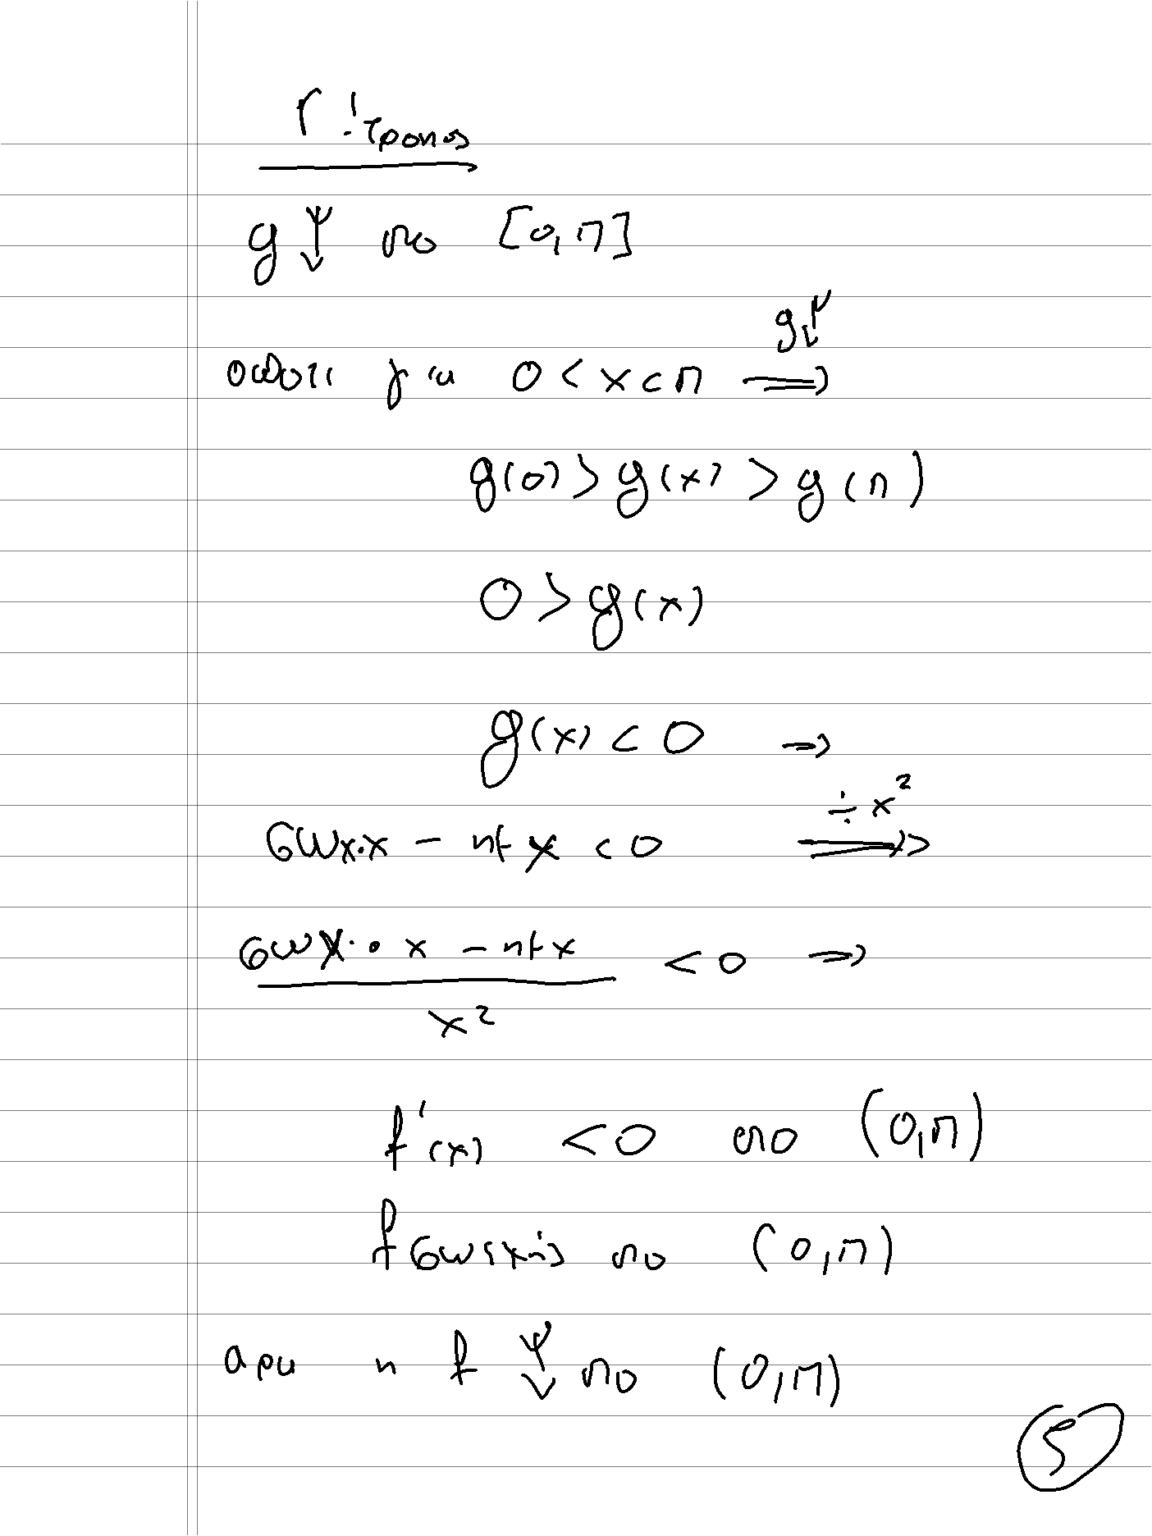 Γ' τροπος
g ↓ στο [0,π]
οποτε για 0 < x < π ⟹ g↓
g(0) > g(x) > g(π)
0 > g(x)
g(x) < 0 ⇒
συνx·x - ημx < 0 ⟹ ÷x²
συνx·x - ημx / x² < 0 ⇒
f'(x) < 0 στο (0,π)
f συνεχης στο (0,π)
αρα η f ↓ στο (0,π)
5